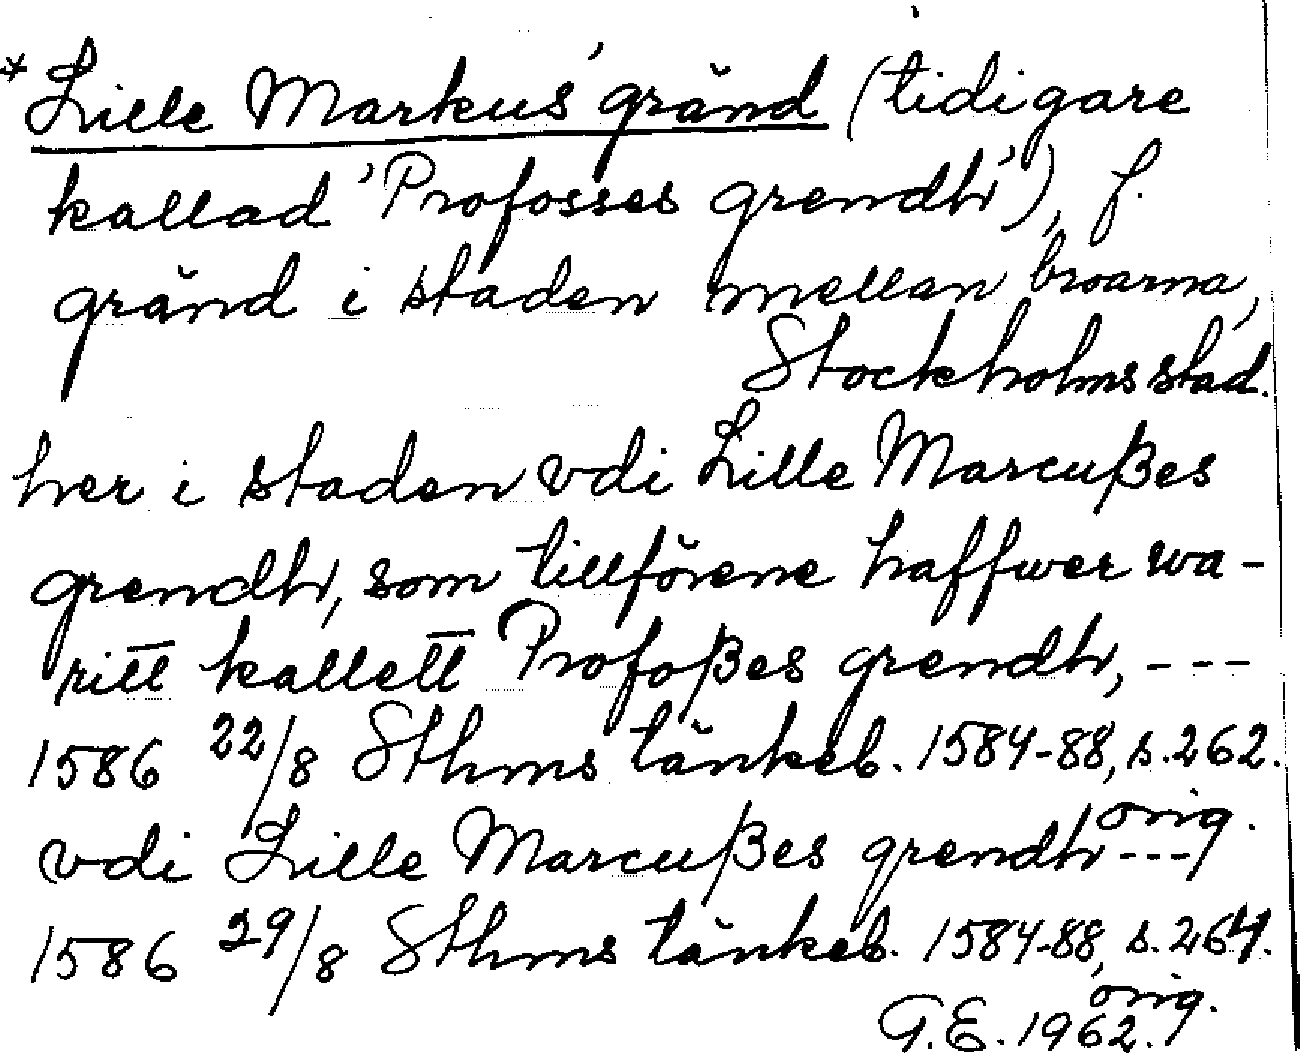 * Lille Markus' gränd (tidigare
kallad 'Profosses grendh'), f.
gränd i staden mellan broarna,
Stockholms stad.
her i staden vdi Lille Marcußes
grendh, som tillförene haffwer wa-
ritt kallett Profoßes grendh, ---
1586 22/8 Sthms tänkeb. 1584-88, s. 262.
orig.
vdi Lille Marcußes grendh ---
1586 29/8 Sthms tänkeb. 1584-88, s. 264.
orig.
G.E. 1962.